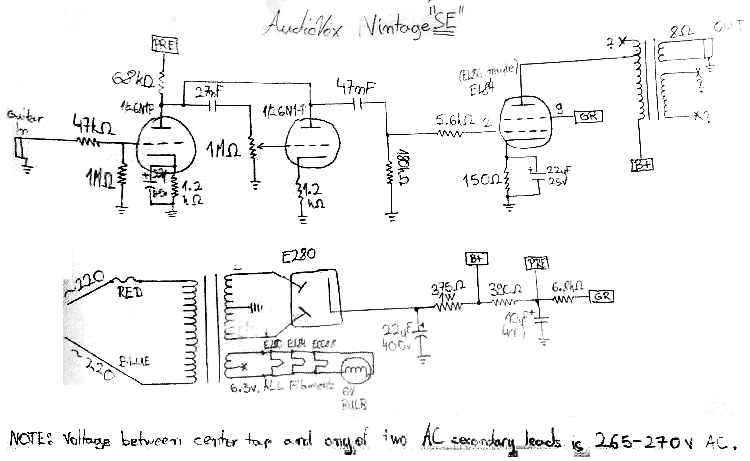 AudioVox Vintage "SE"
PRE
68kΩ
27nF
47nF
1/2 6N1P
1/2 6N1P
(EL86, maybe)
EL84
? X
8Ω
OUT
Guitar
In
47kΩ
1MΩ
1MΩ
1.2
kΩ
1.2
kΩ
180kΩ
5.6kΩ
2
9
GR
150Ω
22µF
25V
X
?
X?
B+
~220
RED
BLUE
~220
EZ80
B+
PRE
375Ω
1W
390Ω
6.8kΩ
GR
22µF
400V
10µF
EZ80 EL84
X
6.3V, ALL Filaments
6V
BULB
NOTE: Voltage between center tap and any of two AC secondary leads is 265-270V AC.